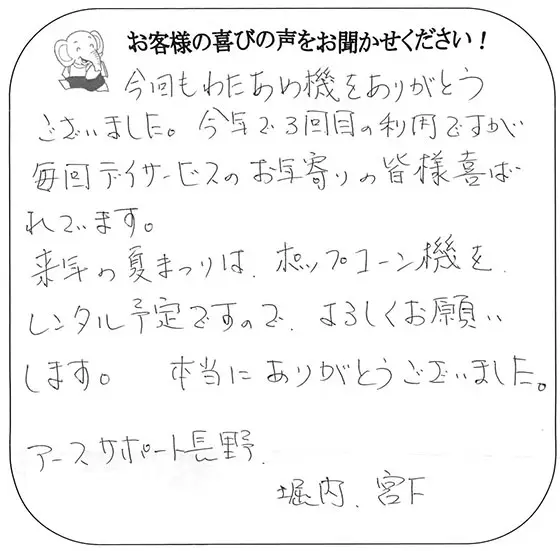 お客様の喜びの声をお聞かせください！
今回もわたあめ機をありがとう
ございました。今年で3回目の利用ですが
毎回デイサービスのお年寄りの皆様喜ば
れています。
来年の夏まつりは、ポップコーン機を
レンタル予定ですので、よろしくお願い
します。 本当にありがとうございました。
アースサポート長野、
堀内、宮下